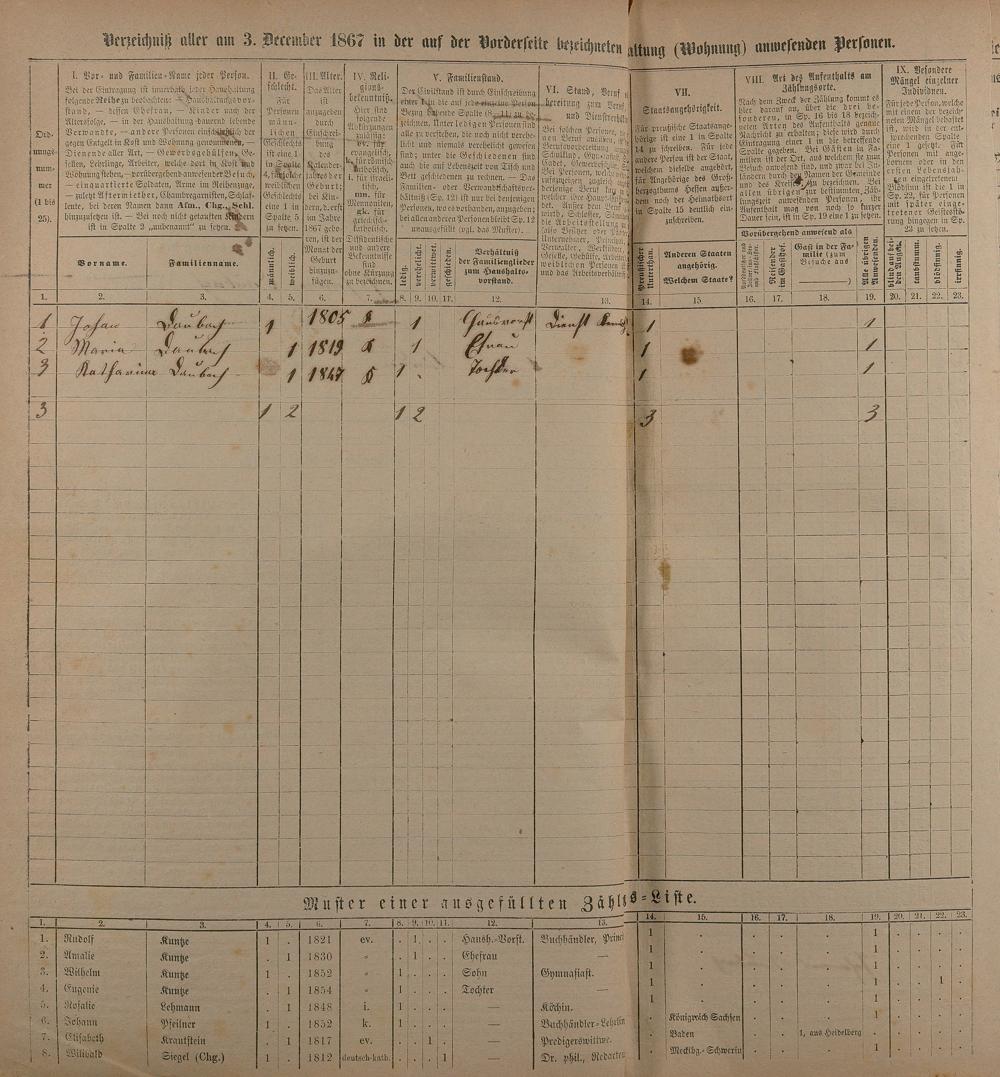 Verzeichniß aller am 3. December 1867 in der auf der Vorderseite bezeichneten altung (Wohnung) anwesenden Personen.
Ord-
nungs-
num-
mer
(1 bis
25).
I. Vor- und Familien-Name jeder Person.
Bei der Eintragung ist innerhalb jeder Haushaltung
folgende Reihe zu beobachten: Haushaltungsvor-
stand, — dessen Ehefrau, — Kinder nach der
Altersfolge, — in der Haushaltung dauernd lebende
Verwandte, — andere Personen
gegen Entgelt in Kost und Wohnung genommenen, —
Dienende aller Art, — Gewerbsgehülfen, Ge-
sellen, Lehrlinge, Arbeiter, welche dort in Kost und
Wohnung stehen, — vorübergehend anwesender Besuch,
— einquartierte Soldaten, Arme im Reihenzuge,
— zuletzt Aftermiether, Chambregarnisten, Schlaf-
leute, bei deren Namen dann Afm., Chg., Schl.
hinzuzusetzen ist. — Bei noch nicht getauften Kindern
ist in Spalte 2 „unbenannt" zu setzen.
Vorname. Familienname.
II. Ge-
schlecht.
Für
Personen
männ-
lichen
Geschlechts
ist eine 1
in Spalte
4, für solche
weiblichen
Geschlechts
eine 1 in
Spalte 5
zu setzen.
männlich. weiblich.
III. Alter.
Das Alter
ist
anzugeben
durch
Einschrei-
bung
des
Kalender-
jahres der
Geburt;
bei Kin-
dern, d. erst
im Jahre
1867 gebo-
ren, ist der
Monat der
Geburt
hinzuzu-
fügen.
IV. Reli-
gions-
bekenntniß.
Hier sind
folgende
Abkürzungen
zulässig:
ev. für
evangelisch,
k. für römisch-
katholisch,
i. für israeli-
tisch,
mm. für
Mennoniten,
gk. für
griechisch-
katholisch.
Dissidentische
und andere
Bekenntnisse
sind
ohne Kürzung
zu bezeichnen.
V. Familienstand.
Der Civilstand ist durch Einschreibung
einer 1 in die auf jede einzelne Person
Bezug habende Spalte
zeichnen. Unter ledigen Personen sind
alle zu verstehen, die noch nicht vereh-
licht und niemals verehelicht gewesen
sind; unter die Geschiedenen sind
auch die auf Lebenszeit von Tisch und
Bett geschiedenen zu rechnen. — Das
Familien- oder Verwandschaftsver-
hältniß (Sp. 12) ist nur bei denjenigen
Personen, wo es vorhanden, anzugeben;
bei allen anderen Personen bleibt Sp. 12
unausgefüllt (vgl. das Muster).
ledig. verehelicht. verwittwet. geschieden.
Verhältniß
der Familienglieder
zum Haushalts-
vorstand.
VI. Stand, Beruf
bereitung zum Beruf,
und Dienstverhältn
VII.
Staatsangehörigkeit.
Für preußische Staatsange-
hörige ist eine 1 in Spalte
14 zu schreiben. Für jede
andere Person ist der Staat,
welchem dieselbe angehört,
für Angehörige des Groß-
herzogthums Hessen außer-
dem noch der Heimathsort
in Spalte 15 deutlich ein-
zuschreiben.
Preußischer
Unterthan.
Anderen Staaten
angehörig.
Welchem Staate?
VIII. Art des Aufenthalts am
Zählungsorte.
Nach dem Zweck der Zählung kommt es
hier darauf an, über die drei be-
sonderen, in Sp. 16 bis 18 bezeich-
neten Arten des Aufenthalts genaue
Nachricht zu erhalten; diese wird durch
Eintragung einer 1 in die betreffende
Spalte gegeben. Bei Gästen in Fa-
milien ist der Ort, aus welchem sie zum
Besuche anwesend sind, und zwar bei In-
ländern durch den Namen der Gemeinde
und des Kreises zu bezeichnen. Bei
allen übrigen zur bestimmten Zäh-
lungszeit anwesenden Personen, ihr
Aufenthalt mag von noch so kurzer
Dauer sein, ist in Sp. 19 eine 1 zu setzen.
Vorübergehend anwesend als
Reisender
im Gasthof.
Gast in der Fa-
milie (zum
Besuche aus
)
Alle übrigen
Anwesenden.
IX. Besondere
Mängel einzelner
Individuen.
Für jede Person, welche
mit einem der bezeich-
neten Mängel behaftet
ist, wird in der ent-
sprechenden Spalte
eine 1 gesetzt. Für
Personen mit ange-
borenem oder in den
ersten Lebensjah-
ren eingetretenem
Blödsinn ist die 1 in
Sp. 22, für Personen
mit später einge-
tretener Geistesstö-
rung hingegen in Sp.
23 zu setzen.
blind auf bei-
den Augen. taubstumm. blödsinnig. irrsinnig.
1. 2. 3. 4. 5. 6. 7. 8. 9. 10. 11. 12. 13. 14. 15. 16. 17. 18. 19. 20. 21. 22. 23.
1 Johan Daubach 1 1805 k 1 Hausvorst Dienst 1 1
2 Maria Daubach 1 1819 k 1 Efrau 1 1
3 Katharina Daubach 1 1847 k 1 Tochter 1 1
3 1 2 1 2 3 3
Muster einer ausgefüllten Zähls-Liste.
1. 2. 3. 4. 5. 6. 7. 8. 9. 10. 11. 12. 13. 14. 15. 16. 17. 18. 19. 20. 21. 22. 23.
1. Rudolf Kuntze 1 . 1821 ev. . 1 . . Haush.-Vorst. Buchhändler, Princ 1 . . . . 1 . . . .
2. Amalie Kuntze . 1 1830 „ . 1 . . Ehefrau — 1 . . . . 1 . . . .
3. Wilhelm Kuntze 1 . 1852 „ 1 . . . Sohn Gymnasiast. 1 . . . . 1 . . . .
4. Eugenie Kuntze . 1 1854 „ 1 . . . Tochter 1 . . . . 1 . . 1 .
5. Rosalie Lehmann . 1 1848 i. 1 . . . — Köchin. 1 . . . . 1 . . . .
6. Johann Pfeilner 1 . 1852 k. 1 . . . — Buchhändler-Lehrlin . Königreich Sachsen . . . 1 . . . .
7. Elisabeth Krautstein . 1 1817 ev. . . 1 . — Predigerswittwe. . Baden . . 1, aus Heidelberg . . . . .
8. Wilibald Siegel (Chg.) 1 . 1812 deutsch-kath. . . . 1 — Dr. phil., Redacteu . Mecklbg.-Schwerin . . . 1 . . . .